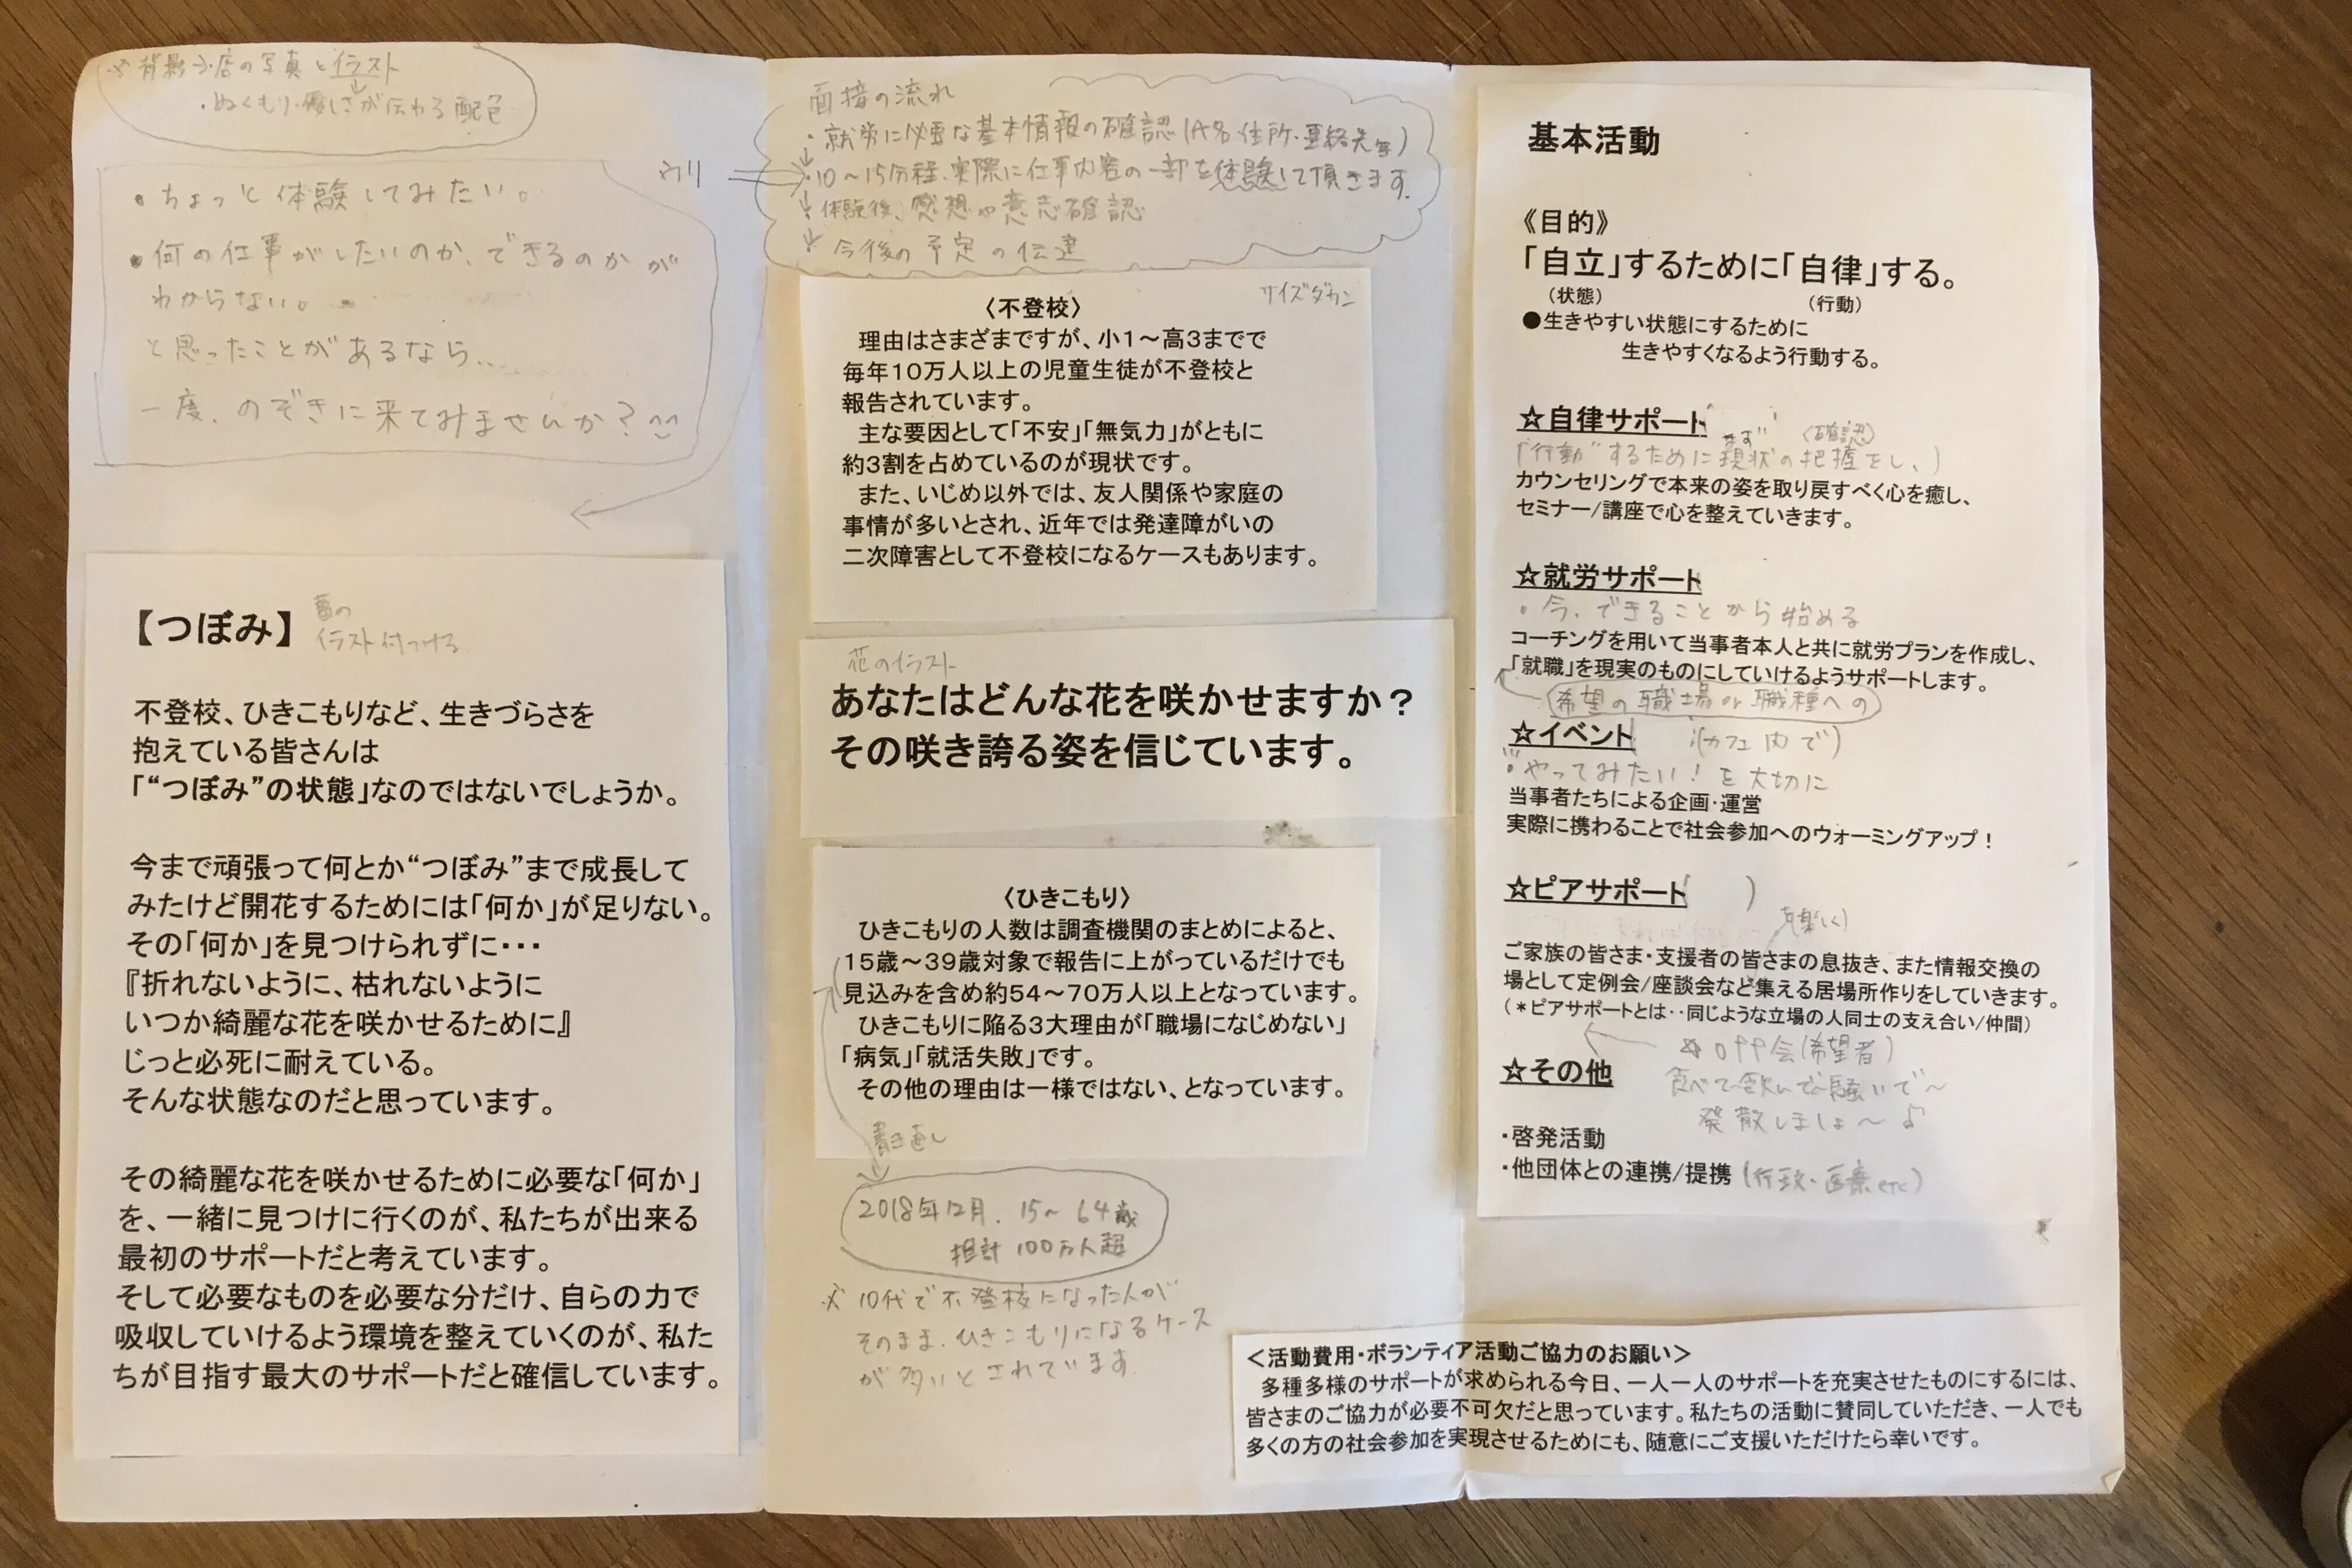 ※背景→・店の写真とイラスト
・ぬくもり・優しさが伝わる配色
・ちょっと体験してみたい。
・何の仕事がしたいのか、できるのかが
わからない。
と思ったことがあるなら…
一度、のぞきに来てみませんか？
【つぼみ】
イラスト付つける
不登校、ひきこもりなど、生きづらさを
抱えている皆さんは
「“つぼみ”の状態」なのではないでしょうか。
今まで頑張って何とか“つぼみ”まで成長して
みたけど開花するためには「何か」が足りない。
その「何か」を見つけられずに・・・
『折れないように、枯れないように
いつか綺麗な花を咲かせるために』
じっと必死に耐えている。
そんな状態なのだと思っています。
その綺麗な花を咲かせるために必要な「何か」
を、一緒に見つけに行くのが、私たちが出来る
最初のサポートだと考えています。
そして必要なものを必要な分だけ、自らの力で
吸収していけるよう環境を整えていくのが、私た
ちが目指す最大のサポートだと確信しています。
面接の流れ
・就労に必要な基本情報の確認(氏名・住所・連絡先等)
ウリ
・10～15分程、実際に仕事内容の一部を体験して頂きます。
・体験後、感想や意志確認
・今後の予定の伝達
サイズダウン
〈不登校〉
理由はさまざまですが、小１～高３までで
毎年１０万人以上の児童生徒が不登校と
報告されています。
主な要因として「不安」「無気力」がともに
約３割を占めているのが現状です。
また、いじめ以外では、友人関係や家庭の
事情が多いとされ、近年では発達障がいの
二次障害として不登校になるケースもあります。
花のイラスト
あなたはどんな花を咲かせますか？
その咲き誇る姿を信じています。
〈ひきこもり〉
ひきこもりの人数は調査機関のまとめによると、
１５歳～３９歳対象で報告に上がっているだけでも
見込みを含め約５４～７０万人以上となっています。
ひきこもりに陥る３大理由が「職場になじめない」
「病気」「就活失敗」です。
その他の理由は一様ではない、となっています。
書き直し
2018年12月、15～64歳
推計 100万人超
※10代で不登校になった人が
そのまま、ひきこもりになるケース
が多いとされています
基本活動
《目的》
「自立」するために「自律」する。
（状態）　（行動）
●生きやすい状態にするために
生きやすくなるよう行動する。
☆自律サポート
まず　(確認)
"行動"するために現状の把握をし、)
カウンセリングで本来の姿を取り戻すべく心を癒し、
セミナー/講座で心を整えていきます。
☆就労サポート
・今、できることから始める
コーチングを用いて当事者本人と共に就労プランを作成し、
「就職」を現実のものにしていけるようサポートします。
希望の職場or職種への
☆イベント　(カフェ内で)
"やってみたい！を大切に
当事者たちによる企画・運営
実際に携わることで社会参加へのウォーミングアップ！
☆ピアサポート(　)
楽しく)
ご家族の皆さま・支援者の皆さまの息抜き、また情報交換の
場として定例会/座談会など集える居場所作りをしていきます。
（＊ピアサポートとは‥同じような立場の人同士の支え合い/仲間）
☆OPP会(希望者)
☆その他
食べて～飲んで～騒いで～
発散しましょ～♪
・啓発活動
・他団体との連携/提携 (行政・医療etc)
＜活動費用・ボランティア活動ご協力のお願い＞
多種多様のサポートが求められる今日、一人一人のサポートを充実させたものにするには、
皆さまのご協力が必要不可欠だと思っています。私たちの活動に賛同していただき、一人でも
多くの方の社会参加を実現させるためにも、随意にご支援いただけたら幸いです。